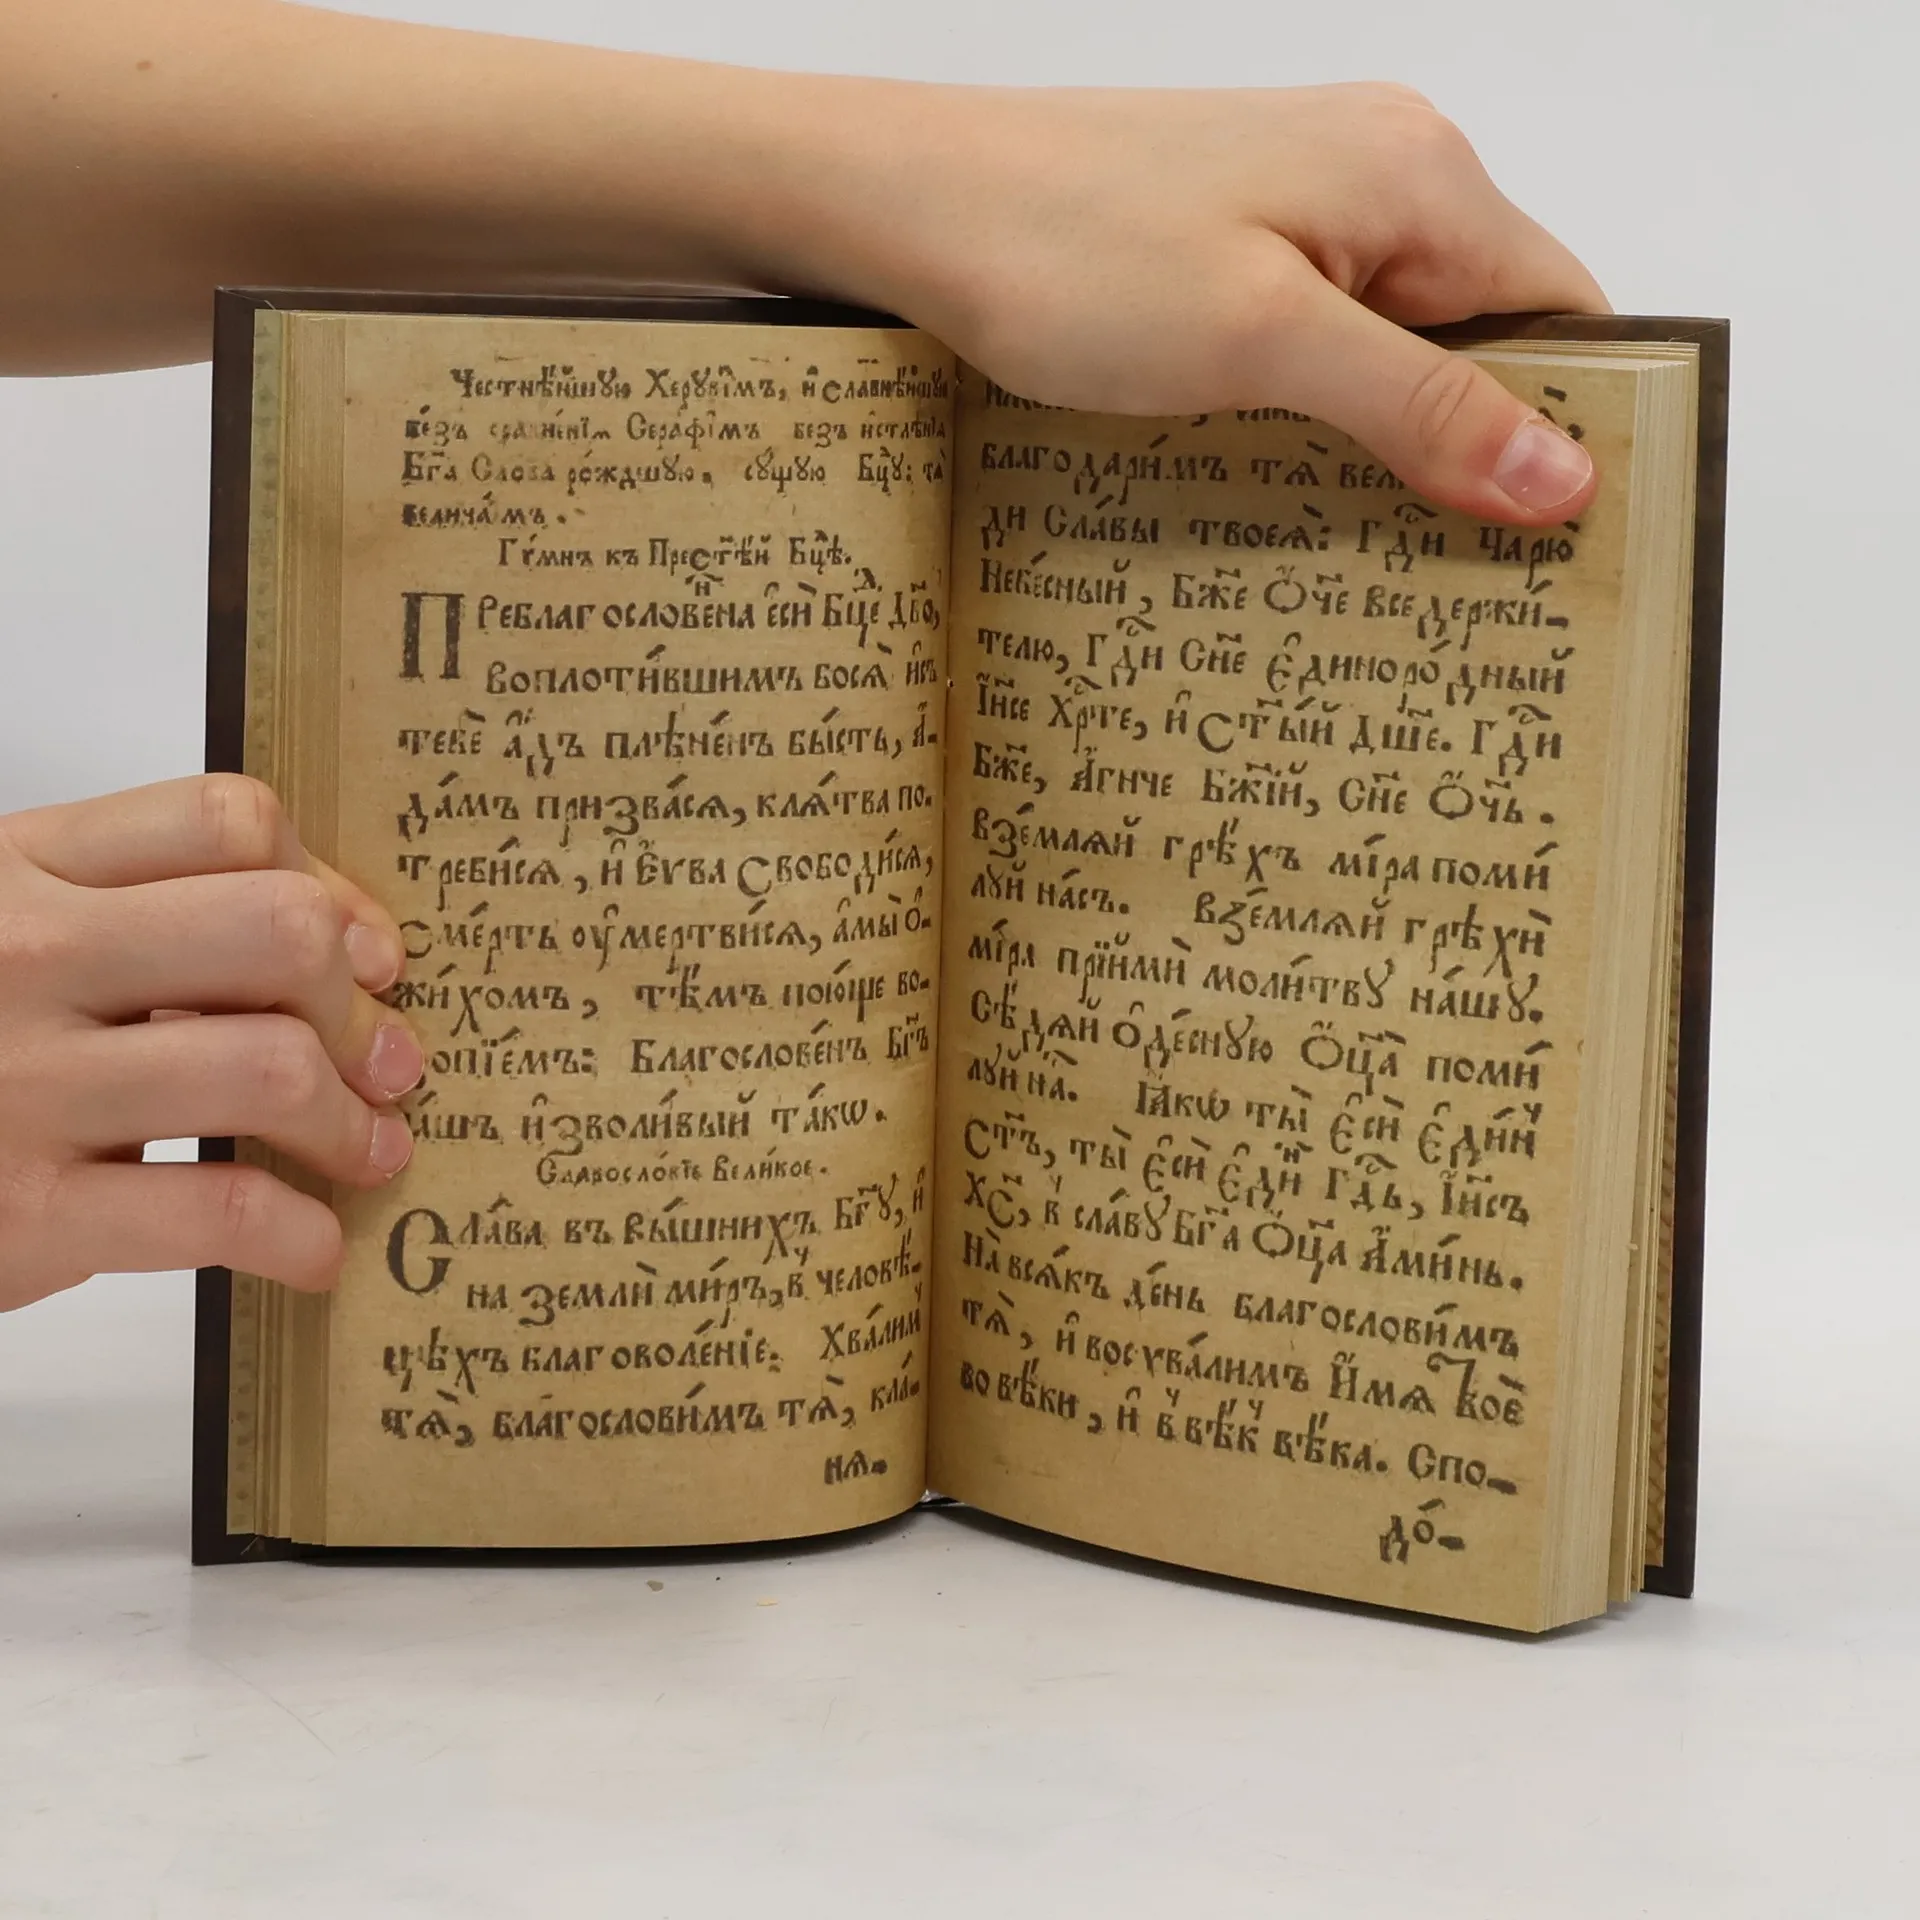 Честнѣ́йшꙋю Херꙋві̑мъ, и҆ славнѣ́йшꙋю
без̾ сравне́нїѧ Серафі̑мъ без̾ и҆стлѣ́нїѧ
Бг҃а Слова ро́ждшꙋю, сꙋ́щꙋю Бц҃ꙋ: тѧ̀
велича́мъ.
Гѵ́мнъ къ Прест҃ѣ́й Бц҃ѣ.
Преблагослове́нна є҆сѝ Бц҃е Дв҃о,
воплоти́вшимъ босѧ̀ и҆съ
тебѐ а҆́дъ плѣне́нъ бы́сть, А҆-
да́мъ призва́сѧ, клѧ́тва по-
треби́сѧ, и҆ Є҆́ѵва свободи́сѧ,
сме́рть оу҆мертви́сѧ, а҆мы̀ ѻ҆-
жи́хомъ, тѣ́мъ пою́ще во-
опїе́мъ: Благослове́нъ Бг҃ъ
а́шъ и҆зволи́вый та́кѡ.
Славосло́вїе Вели́кое.
Сла́ва въ вы́шнихъ Бг҃ꙋ, и҆
на землѝ ми́ръ, в̾ человѣ́-
цѣхъ благоволе́нїе. Хва́лим
тѧ̀, благослови́мъ тѧ̀, кла́-
нѧ-
благодари́мъ тѧ̀
ди Сла́вы твоеѧ̀: Гд҃и Царю̀
Небе́сный, Бж҃е Ѻ҆́ч҃е вседержи́-
телю, Гд҃и Сн҃е Є҆диноро́дный
І҆и҃се Хр҃те, и҆ Ст҃ы́й Дш҃е. Гд҃и
Бж҃е, А҆́гнче Бж҃їй, Сн҃е Ѻ҆́ч҃ь.
взе́млѧй грѣ́хъ мі́ра поми́
лꙋй на́съ. Взе́млѧй грѣхѝ
мі́ра прїймѝ моли́твꙋ на́шꙋ.
Сѣдѧ́й ѻ҆де́снꙋю Ѻ҆ц҃а̀ поми́
лꙋй на̀. Ꙗ҆́кѡ ты̀ є҆сѝ є҆ди́н
Ст҃ъ, ты̀ є҆сѝ є҆ди́н Гд҃ь, І҆и҃съ
Хс҃, в̾ сла́вꙋ Бг҃а Ѻ҆ц҃а А҆ми́нь.
На̀ всѧ́къ де́нь благослови́мъ
тѧ̀, и҆ восхва́лимъ И҆́мѧ Твоѐ
во вѣ́ки, и҆ в̾ вѣ́к вѣ́ка. Спо-
до́-